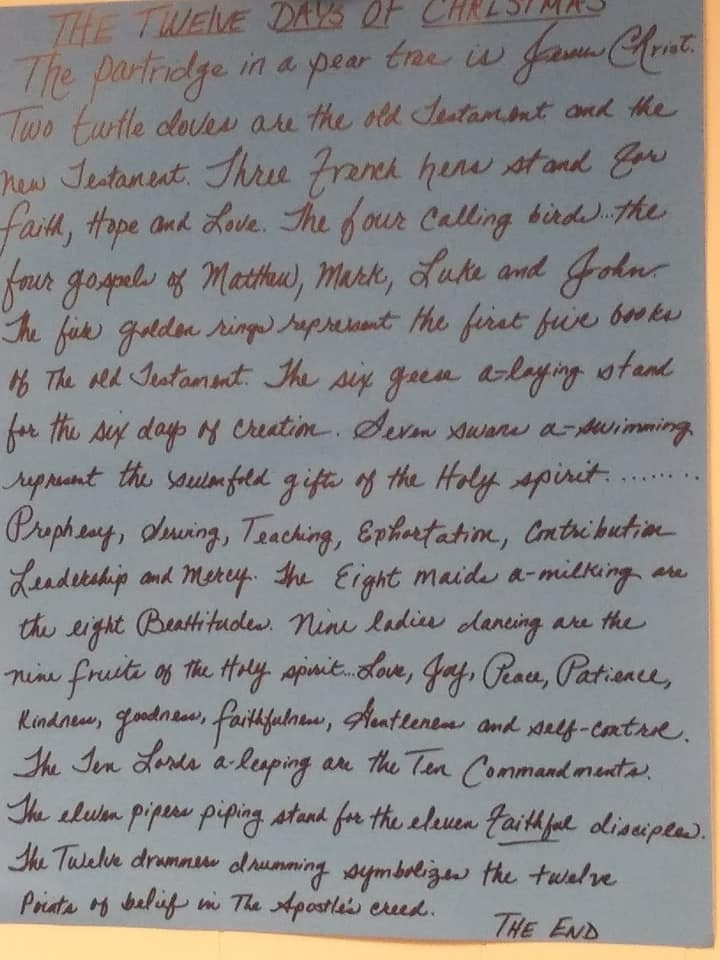 THE TWELVE DAYS OF CHRISTMAS
The partridge in a pear tree is Jesus Christ.
Two turtle doves are the old Testament and the
new Testament. Three French hens stand for
faith, Hope and Love. The four Calling birds...the
four gospels of Matthew, Mark, Luke and John.
The five golden rings represent the first five books
of The old Testament. The six geese a-laying stand
for the six days of creation. Seven swans a-swimming
represent the sevenfold gifts of the Holy spirit.........
Prophesy, Serving, Teaching, Exhortation, Contribution
Leadership and Mercy. The Eight maids a-milking are
the eight Beattitudes. Nine ladies dancing are the
nine fruits of the Holy spirit...Love, Joy, Peace, Patience,
Kindness, goodness, faithfulness, Gentleness and self-control.
The Ten Lords a-leaping are the Ten Commandments.
The eleven pipers piping stand for the eleven Faithful disciples.
The Twelve drummers drumming symbolizes the twelve
Points of belief in The Apostle's creed.
THE END